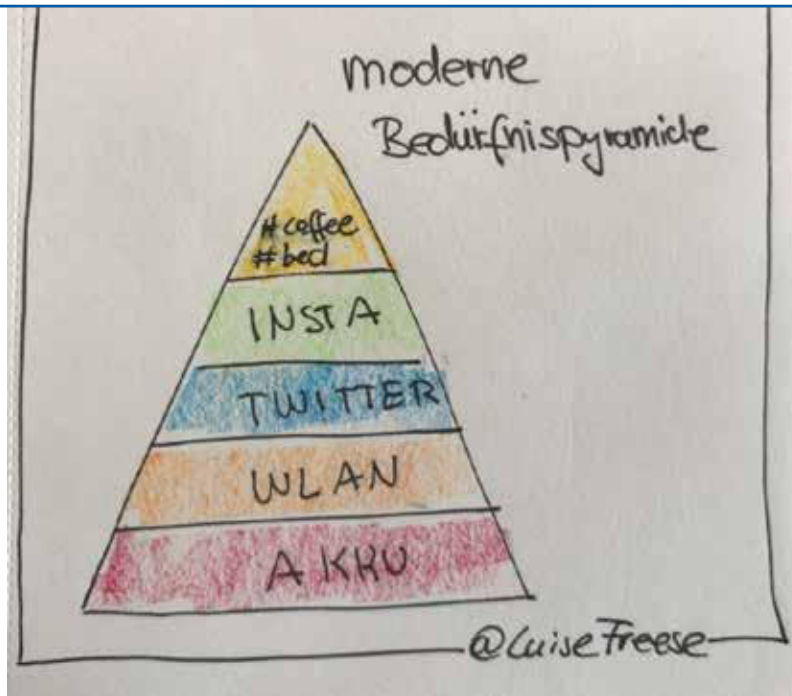 moderne
Bedürfnispyramide
#coffee
#bed
INSTA
TWITTER
WLAN
AKKU
@LuiseFreese